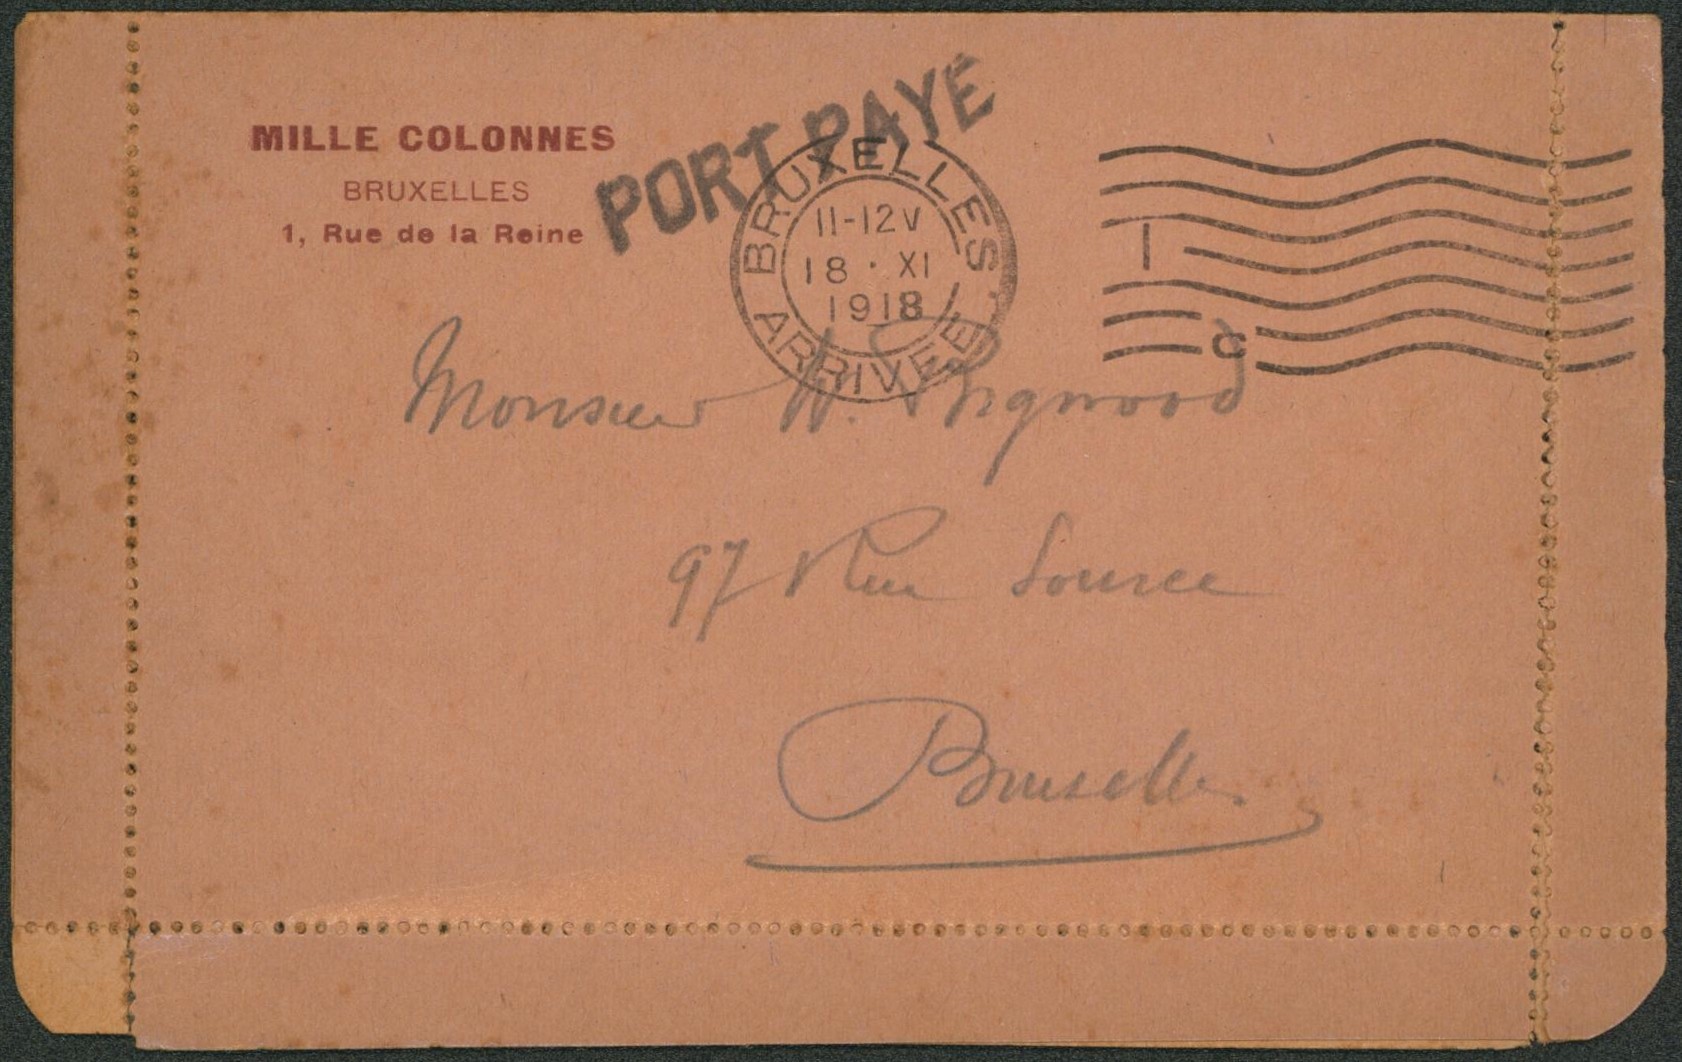 MILLE COLONNES
BRUXELLES
1, Rue de la Reine
PORT PAYE
BRUXELLES
11-12V
18 · XI
1918
ARRIVÉE
1
C
Monsieur
97 Rue Source
Bruxelles